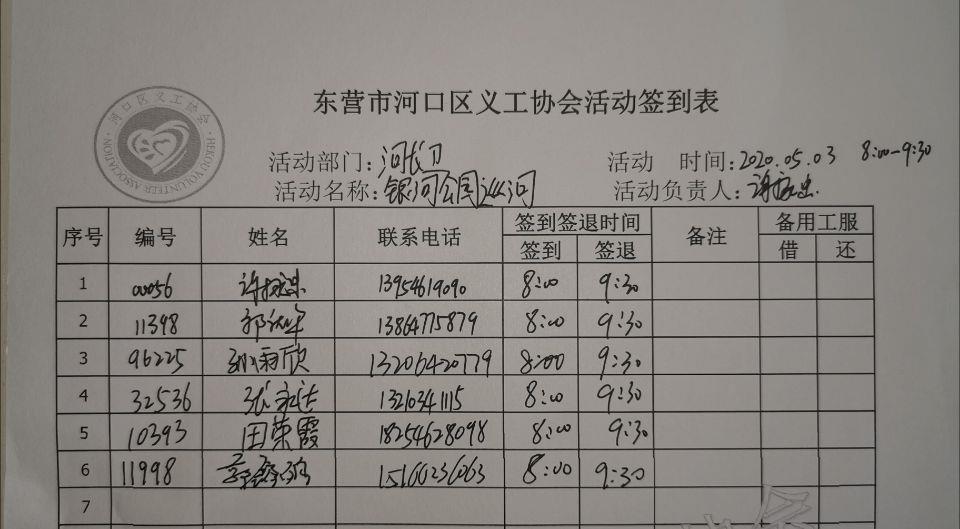 东营市河口区义工协会活动签到表
河口区义工协会
HEKOU VOLUNTEER ASSOCIATION
活动部门: 活动 时间: 2020.05.03 8:00-9:30
活动名称: 银河公园巡河 活动负责人:
序号 编号 姓名 联系电话 签到签退时间 备注 备用工服
签到 签退 借 还
1 00056 13954619090 8:00 9:30
2 11398 13864775879 8:00 9:30
3 96225 13206420779 8:00 9:30
4 32536 13210341115 8:00 9:30
5 10393 田荣霞 18254628098 8:00 9:30
6 11998 15166236063 8:00 9:30
7